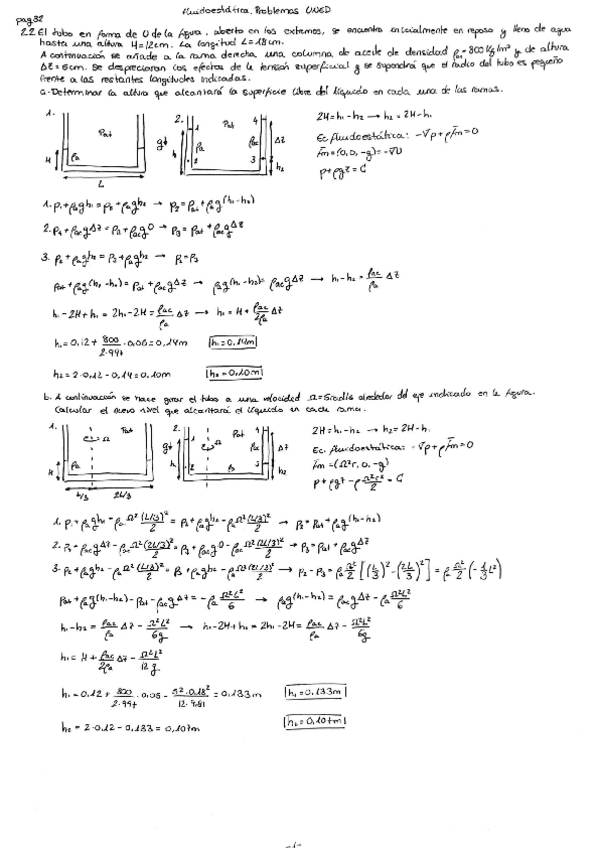 pag 32
Fluidoestática. Problemas UNED
2.2 El tubo en forma de U de la figura, abierto en los extremos, se encuentra inicialmente en reposo y lleno de agua
hasta una altura H=12cm. La longitud L=18cm.
A continuación se añade a la rama derecha una columna de aceite de densidad ρac=800 kg/m³ y de altura
ΔZ=6cm. Se despreciarán los efectos de la tensión superficial y se supondrá que el radio del tubo es pequeño
frente a las restantes longitudes indicadas.
a. Determinar la altura que alcantará la superficie libre del líquido en cada una de las ramas.
1. Pat H ρa L
2. Pat g h 1 2 ρa 4 ρac 3 ΔZ h2
2H = h1 - h2 → h2 = 2H - h1
Ec. fluidoestática: -∇p + ρf̄m = 0
f̄m = (0, 0, -g) = -∇U
p + ρgz = C
1. p1 + ρagh1 = p2 + ρagh2 → p2 = pat + ρag(h1-h2)
2. p4 + ρacgΔZ = p3 + ρacg0 → p3 = pat + ρacgΔZ
3. p2 + ρagh2 = p3 + ρagh2 → p2 = p3
pat + ρag(h1-h2) = pat + ρacgΔZ → ρag(h1-h2) = ρacgΔZ → h1-h2 = ρac/ρa ΔZ
h1 - 2H + h1 = 2h1 - 2H = ρac/ρa ΔZ → h1 = H + ρac/2ρa ΔZ
h1 = 0,12 + 800/2·997 · 0,06 = 0,14m h1 = 0,14m
h2 = 2·0,12 - 0,14 = 0,10m h2 = 0,10m
b. A continuación se hace girar el tubo a una velocidad Ω=5rad/s alrededor del eje indicado en la figura.
Calcular el nuevo nivel que alcantará el líquido en cada rama.
1. Ω Pat H ρa L/3 2L/3
2. g h 1 2 ρa Ω Pat 4 ρac 3 ΔZ h2
2H = h1 - h2 → h2 = 2H - h1
Ec. fluidoestática: -∇p + ρf̄m = 0
f̄m = (Ω²r, 0, -g)
p + ρgz - ρ Ω²r²/2 = C
1. p1 + ρagh1 - ρa Ω²(L/3)²/2 = p2 + ρagh2 - ρa Ω²(L/3)²/2 → p2 = pat + ρag(h1-h2)
2. p4 + ρacgΔZ - ρac Ω²(2L/3)²/2 = p3 + ρacg0 - ρac Ω²(2L/3)²/2 → p3 = pat + ρacgΔZ
3. p2 + ρagh2 - ρa Ω²(L/3)²/2 = p3 + ρagh2 - ρa Ω²(2L/3)²/2 → p2 - p3 = ρa Ω²/2 [(L/3)² - (2L/3)²] = ρa Ω²/2 (-1/3 L²)
pat + ρag(h1-h2) - pat - ρacgΔZ = -ρa Ω²L²/6 → ρag(h1-h2) = ρacgΔZ - ρa Ω²L²/6
h1-h2 = ρac/ρa ΔZ - Ω²L²/6g → h1 - 2H + h1 = 2h1 - 2H = ρac/ρa ΔZ - Ω²L²/6g
h1 = H + ρac/2ρa ΔZ - Ω²L²/12g
h1 = 0,12 + 800/2·997 · 0,06 - 5²·0,18²/12·9,81 = 0,133m h1 = 0,133m
h2 = 2·0,12 - 0,133 = 0,107m h2 = 0,107m
-1-